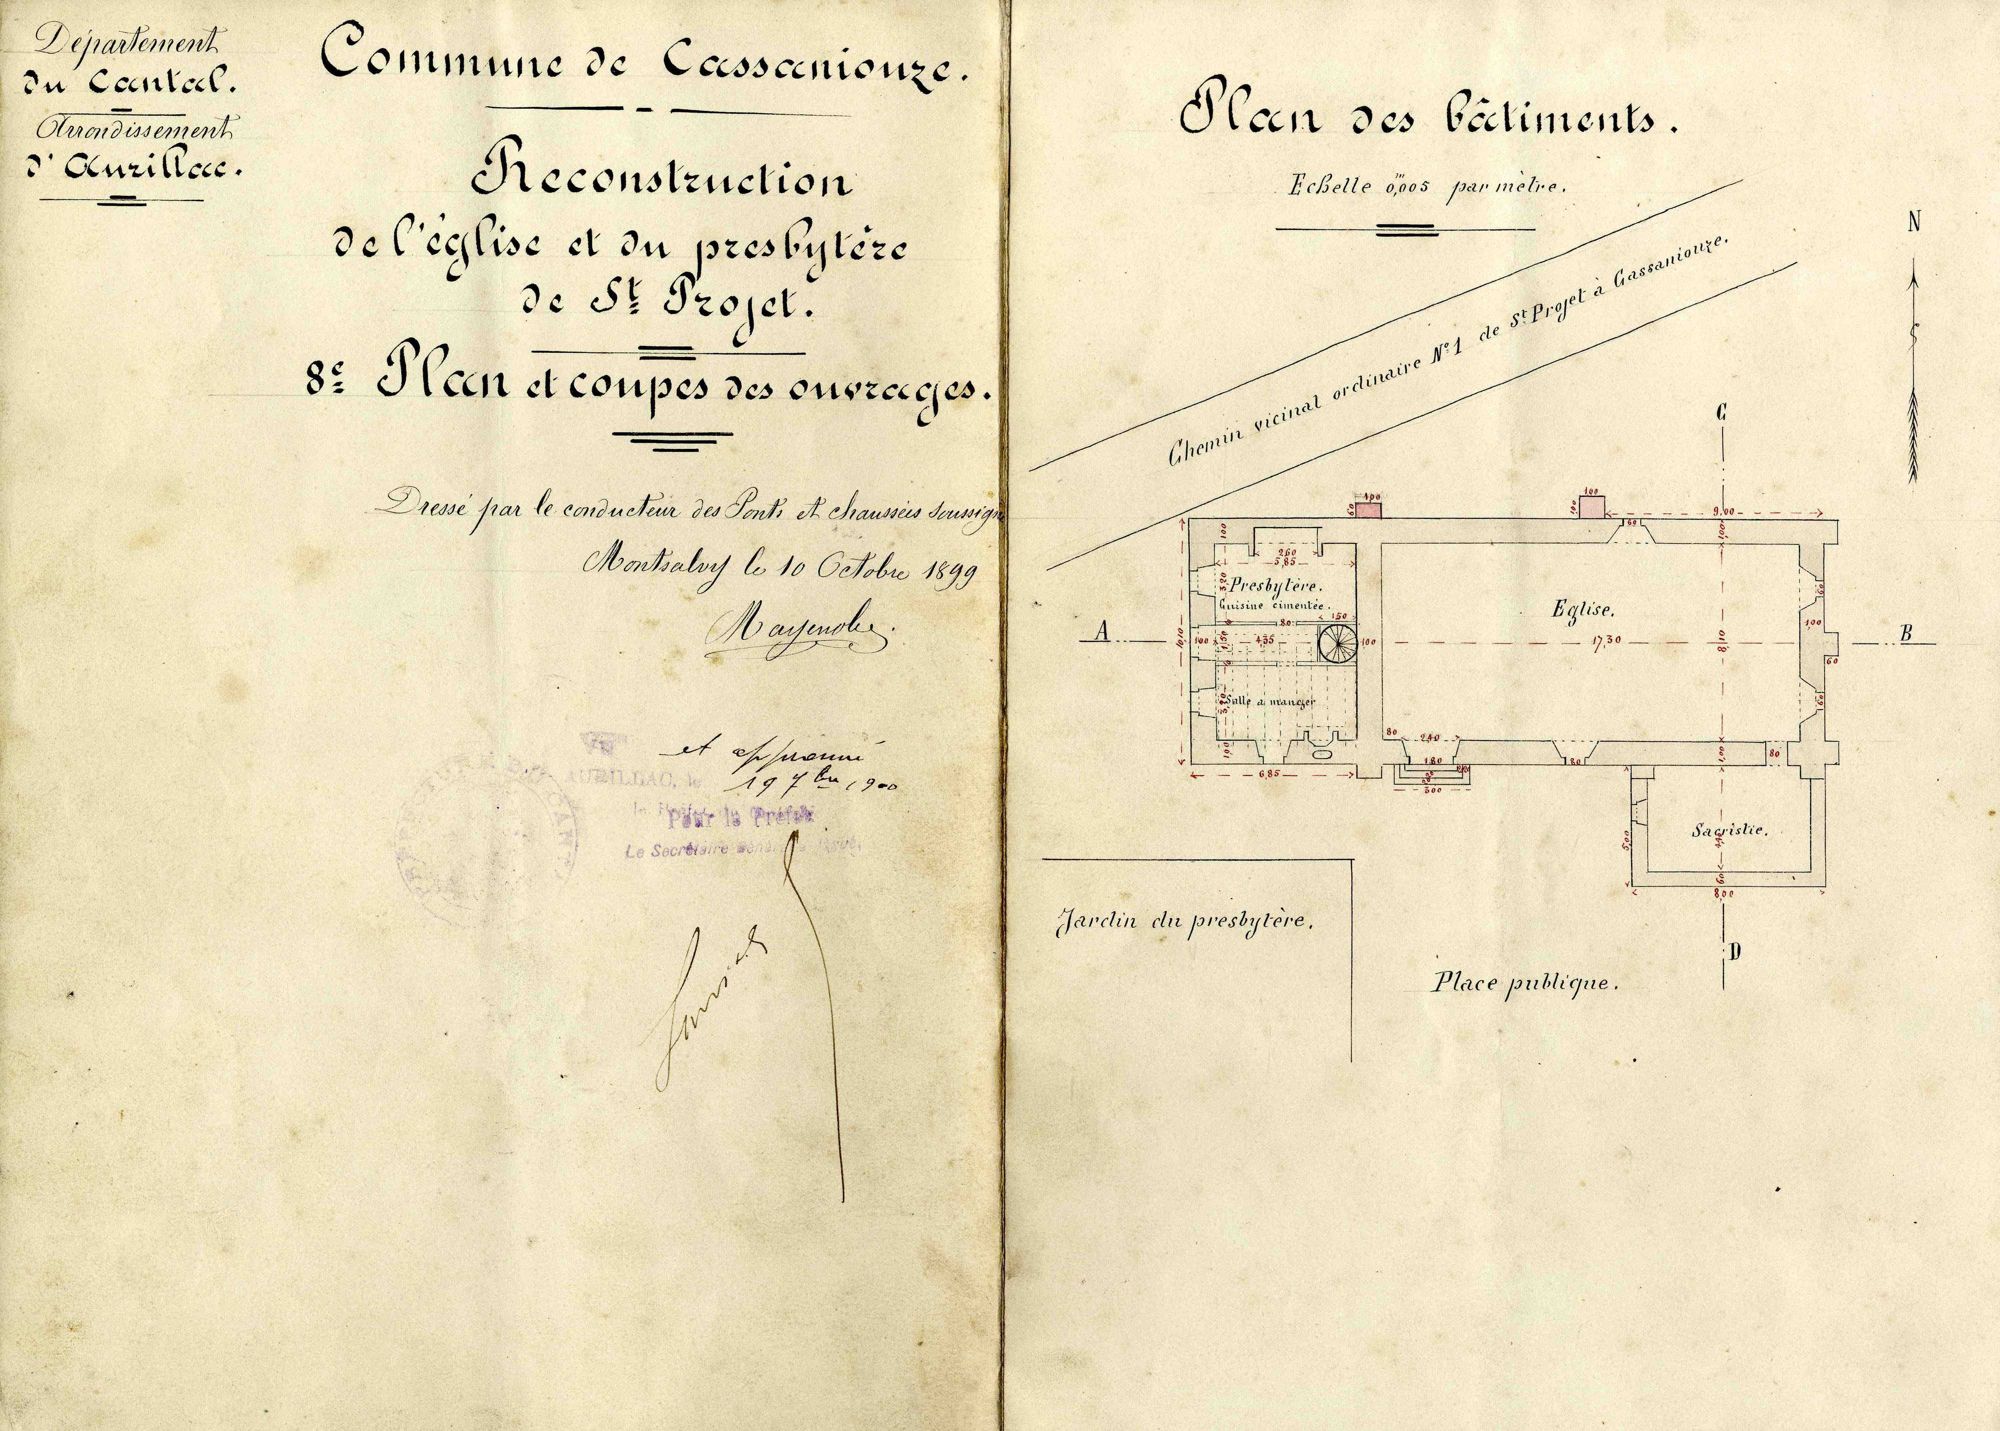 Département
du Cantal.
Arrondissement
d'Aurillac.
Commune de Cassaniouze.
Reconstruction
de l'église et du presbytère
de St Projet.
8e Plan et coupes des ouvrages.
Dressé par le conducteur des Ponts et chaussées soussigné
Montsalvy le 10 Octobre 1899
et approuvé
AURILLAC, le 19 7bre 1900
Pour le Préfet
Le Secrétaire
Plan des bâtiments.
Echelle 0m,005 par mètre.
N
Chemin vicinal ordinaire No 1 de St Projet à Cassaniouze.
C
100
60
100
100
9,00
100
60
100
2,60
5,85
Presbytère.
3,20
Cuisine cimentée.
Eglise.
60
1,00
A
10,10
100
4,35
1,50
80
150
100
17,30
8,10
B
60
Salle à manger
3,20
60
100
80
240
180
300
80
1,00
80
6,85
Sacristie.
5,00
60
8,00
Jardin du presbytère.
D
Place publique.